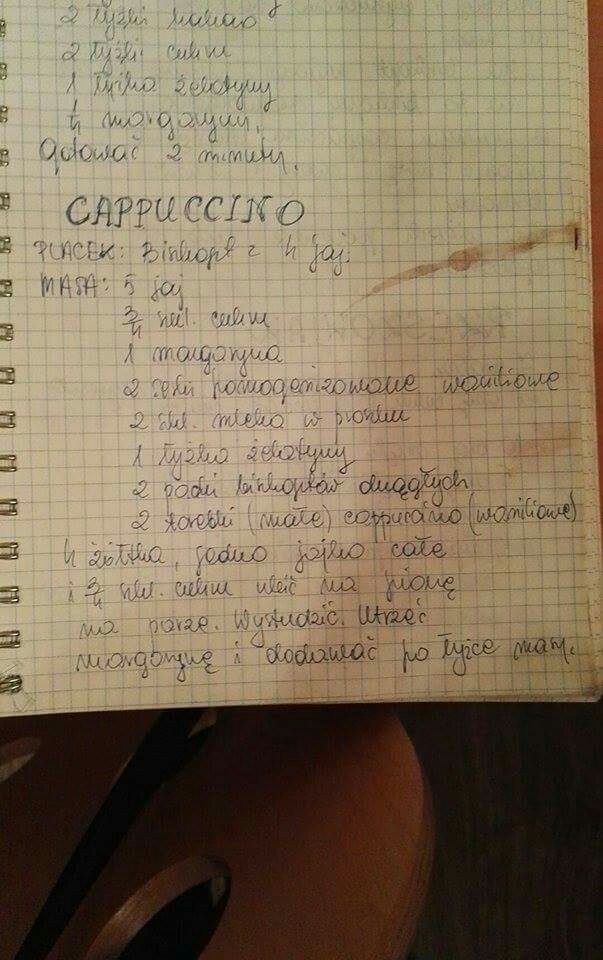 2 łyżki kakao
2 łyżki cukru
1 łyżka żelatyny
1/4 margaryny.
Gotować 2 minuty.
CAPPUCCINO
PLACEK: Biszkopt z 4 jaj.
MASA: 5 jaj
3/4 szkl. cukru
1 margaryna
2 serki homogenizowane waniliowe
2 szkl. mleka w proszku
1 łyżka żelatyny
2 paczki biszkoptów okrągłych
2 torebki (małe) cappuccino (waniliowe)
4 żółtka, jedno jajko całe
i 3/4 szkl. cukru ubić na pianę
na parze. Wystudzić. Utrzeć
margarynę i dodawać po łyżce masy.